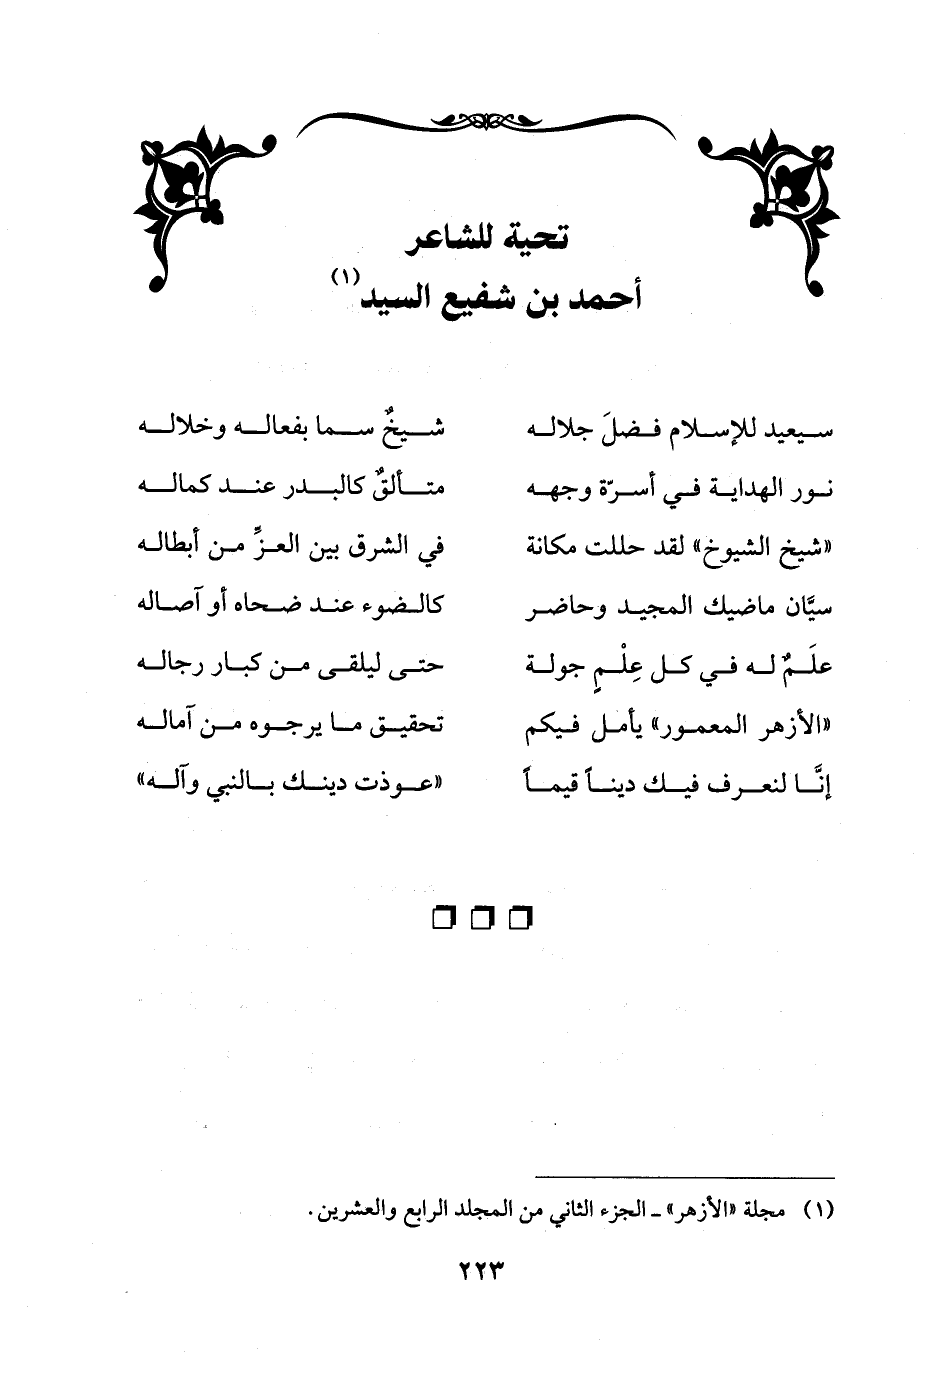 تحية للشاعر
أحمد بن شفيع السيد(١)
سيعيد للإسلام فضلَ جلاله شيخٌ سما بفعاله وخلاله
نور الهداية في أسرّة وجهه متألقٌ كالبدر عند كماله
«شيخ الشيوخ» لقد حللت مكانة في الشرق بين العزِّ من أبطاله
سيَّان ماضيك المجيد وحاضر كالضوء عند ضحاه أو آصاله
علَمٌ له في كل عِلْمٍ جولة حتى ليلقى من كبار رجاله
«الأزهر المعمور» يأمل فيكم تحقيق ما يرجوه من آماله
إنَّا لنعرف فيك ديناً قيماً «عوذت دينك بالنبي وآله»
(١) مجلة «الأزهر» ـ الجزء الثاني من المجلد الرابع والعشرين.
٢٢٣